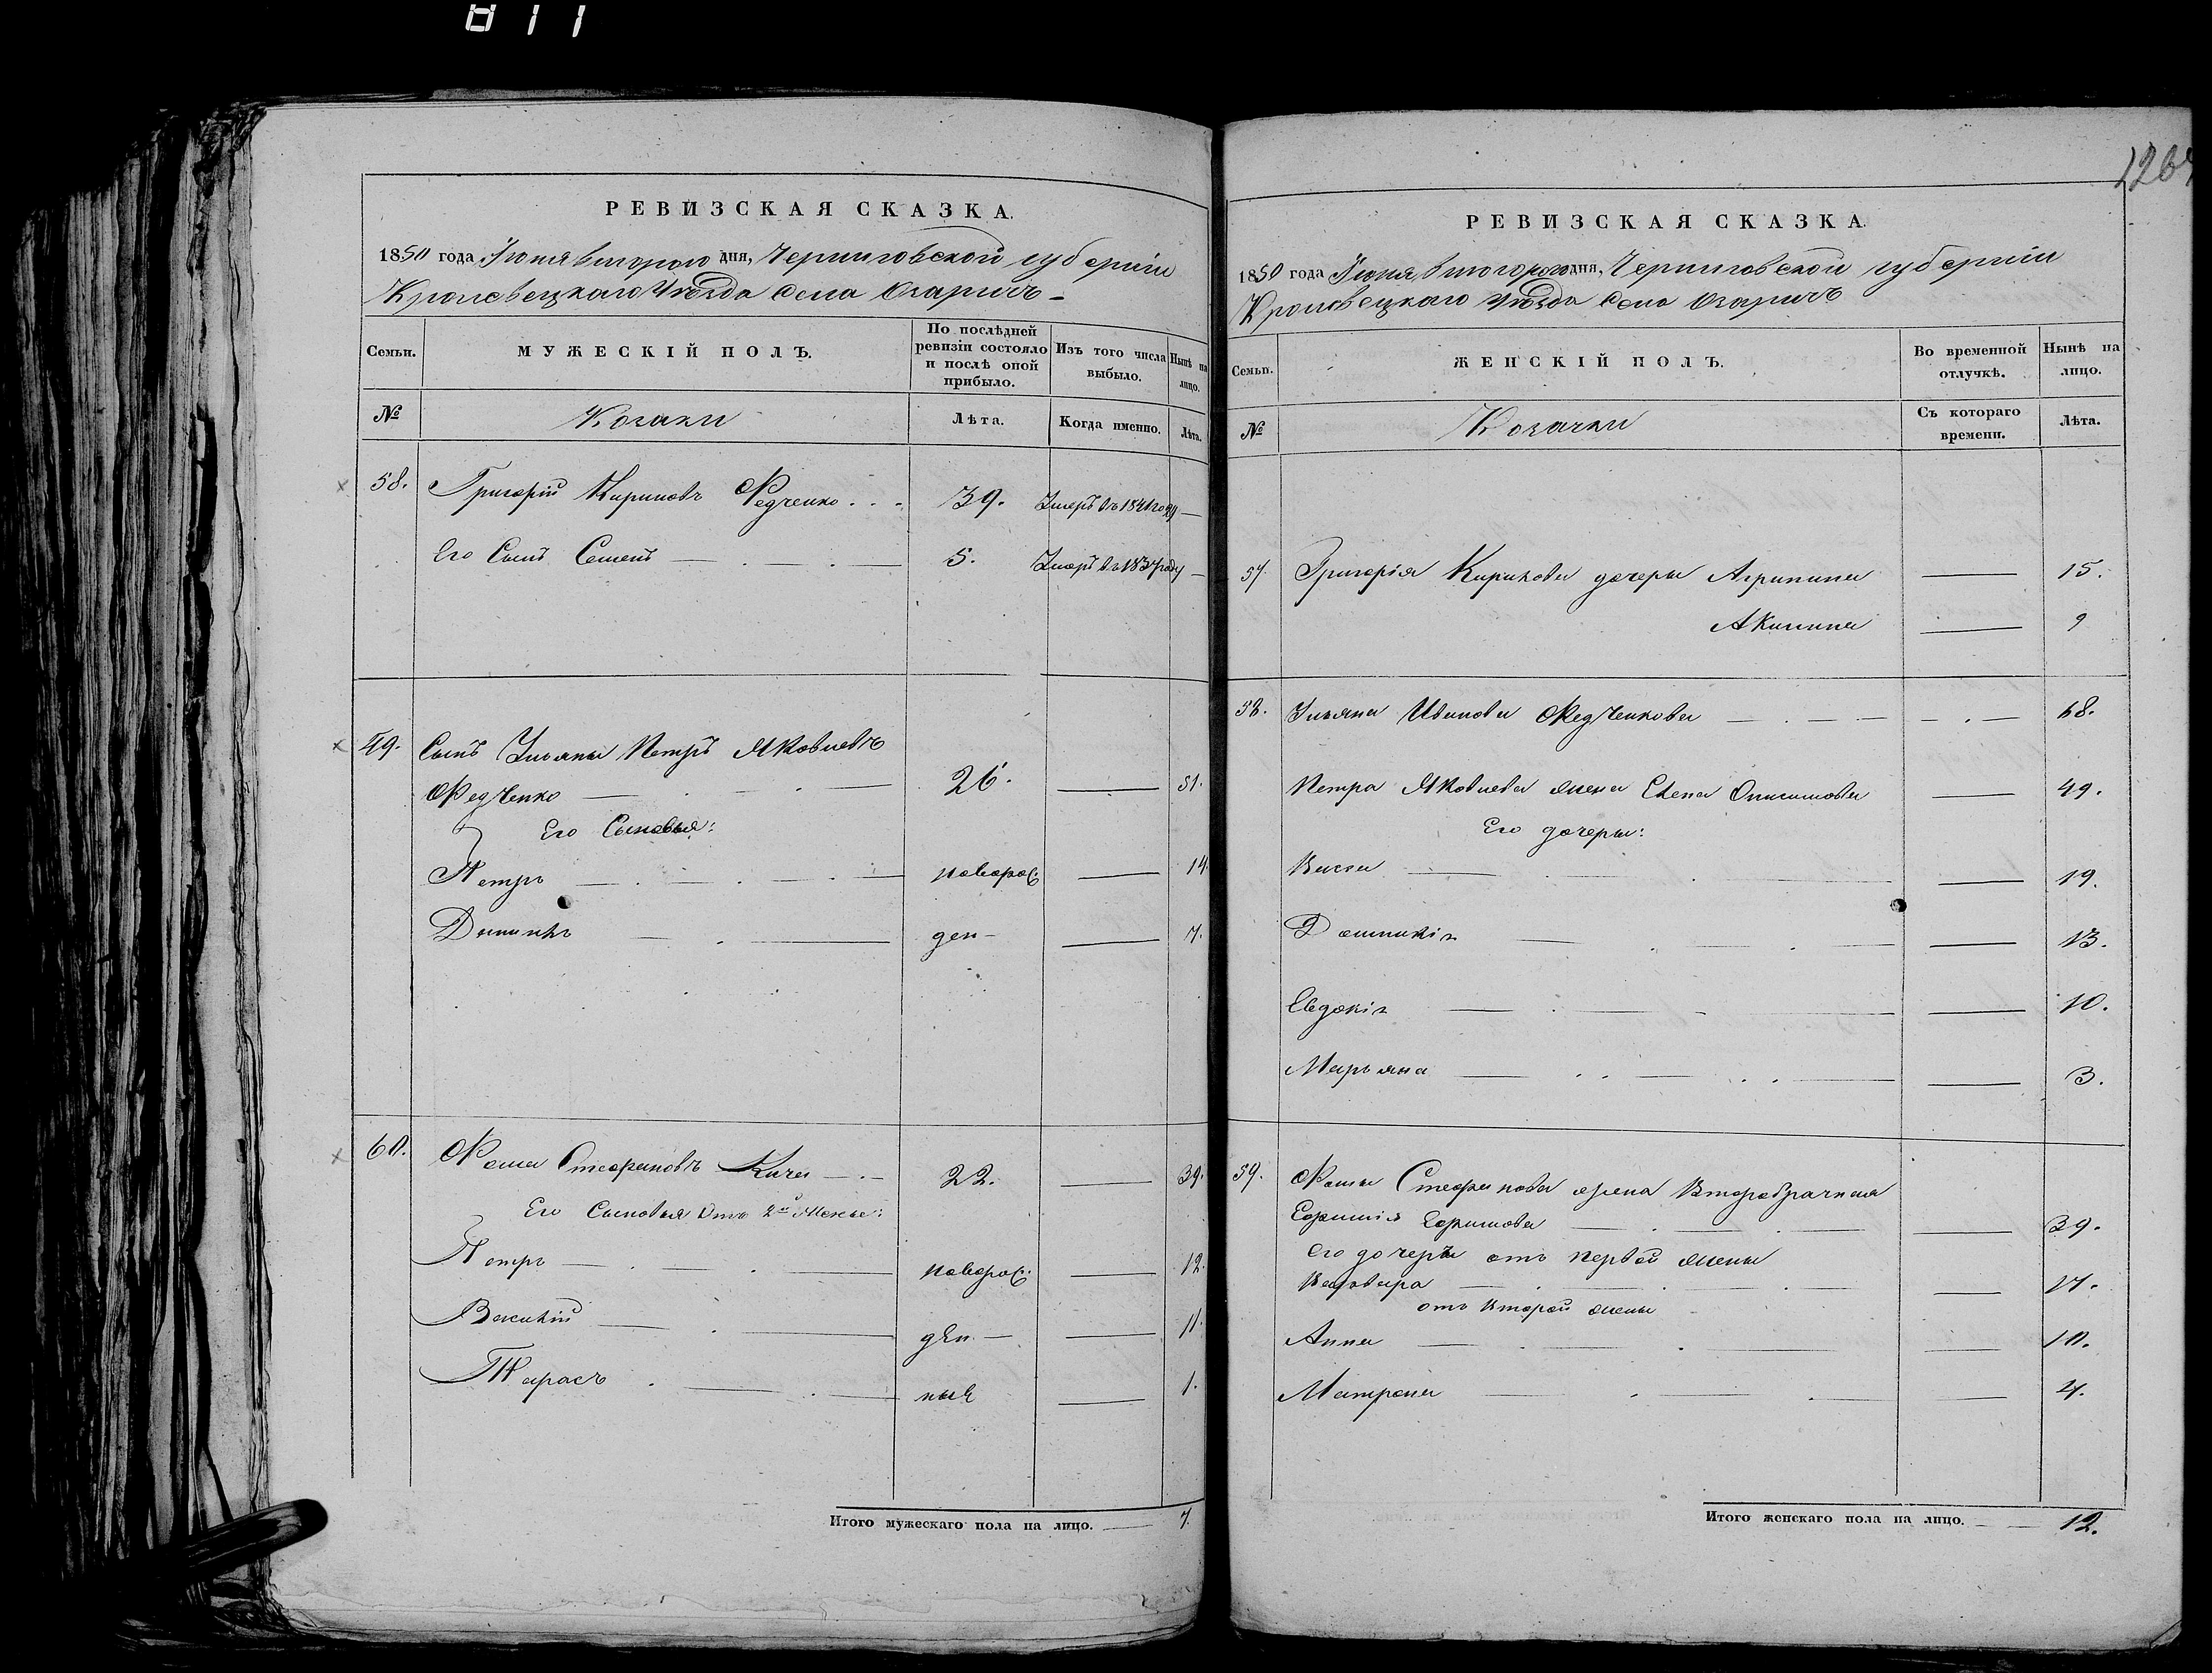 811
РЕВИЗСКАЯ СКАЗКА.
1850 года Іюня второго дня, Черниговской губерніи
Кролевецкаго уѣзда села Озаричъ
Семьи.
МУЖЕСКІЙ ПОЛЪ.
По послѣдней ревизіи состояло и послѣ оной прибыло.
Изъ того числа выбыло.
Нынѣ на лицо.
№
Козаки
Лѣта.
Когда именно.
Лѣта.
58. Григорій Кириковъ Федченко 39. Умеръ въ 1841 году
Его Сынъ Семенъ 5. Умеръ въ 1837 году
59. Сынъ Ульяны Петръ Яковлевъ
Федченко 26. 51.
Его Сыновья:
Петръ новорож 14.
ден 7.
60. Фома Стефановъ 22. 39.
Его Сыновья отъ 2й Жены:
Петръ новорож. 12.
Василій ден 11.
Тарасъ ные 1.
Итого мужескаго пола на лицо. 7.
РЕВИЗСКАЯ СКАЗКА.
1850 года Іюня второгого дня, Черниговской губерніи
Кролевецкаго уѣзда села Озаричъ
Семьи.
ЖЕНСКІЙ ПОЛЪ.
Во временной отлучкѣ.
Нынѣ на лицо.
№
Козачки
Съ котораго времени.
Лѣта.
57. Григорія Кирикова дочеры Агрипина 15.
Акилина 9
58. Ульяна Иванова Федченкова 68.
Петра Яковлева жена Елена Онисимова 49.
Его дочеры:
Васса 19.
Домникія 13.
Евдокія 10.
Марьяна 3.
59. Фомы Стефанова жена Второбрачная
Ефимія Ефимова 39.
его дочеръ отъ первой жены
17.
отъ Второй жены
Анна 10.
Матрона 4.
Итого женскаго пола на лицо. 12.